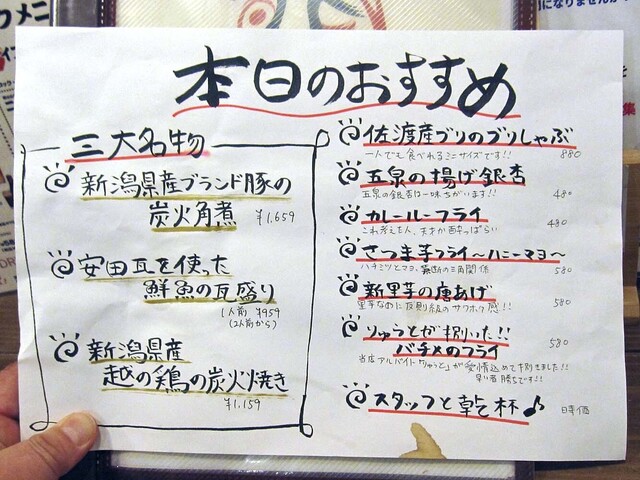 本日のおすすめ
三大名物
新潟県産ブランド豚の
炭火角煮
¥1,659
安田瓦を使った
鮮魚の瓦盛り
1人前 ¥959
(2人前から)
新潟県産
越の鶏の炭火焼き
¥1,159
佐渡産ブリのブリしゃぶ
一人でも食べれるミニサイズです!!
880
五泉の揚げ銀杏
五泉の銀杏は一味ちがいます!!
480
カレールーフライ
これ考えた人、天才か酔っぱらい
480
さつま芋フライ〜ハニーマヨ〜
ハチミツとマヨ、禁断の三角関係
580
新里芋の唐あげ
里芋なめに反則級のサクホク感!!
580
りゅうとが捌いた!!
バチメのフライ
580
当店アルバイト「りゅうと」が愛情込めて捌きました!!
早い者勝ちです!!
スタッフと乾杯♪
時価
フメニ
になりませんか
を
集